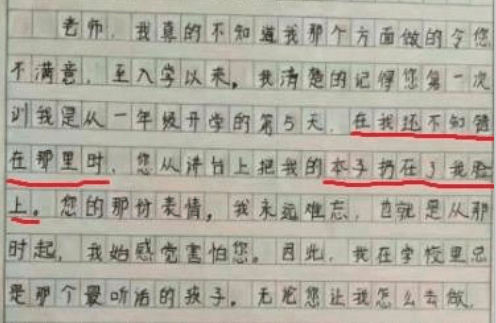 老师，我真的不知道我那个方面做的令您
不满意，至入学以来，我清楚的记得您第一次
训我是从一年级开学的第5天，在我还不知错
在那里时，您从讲台上把我的本子扔在了我脸
上。您的那份表情，我永远难忘，也就是从那
时起，我始感觉害怕您。因此，我在学校里总
是那个最听话的孩子。无论您让我怎么去做，